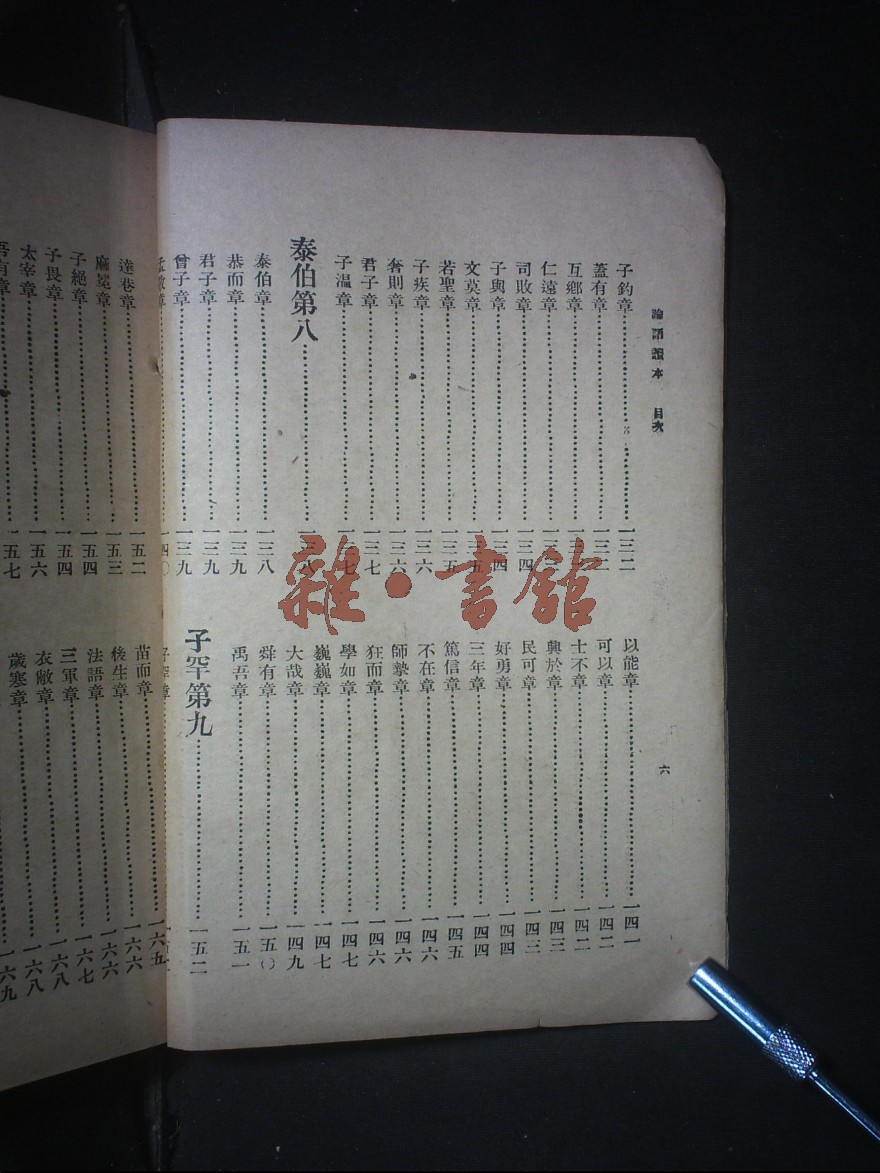 論語讀本　目次
六
子釣章……一三二
蓋有章……一三二
互鄉章……一三
仁遠章……一三
司敗章……一三四
子與章……一三四
文莫章……一三五
若聖章……一三五
子疾章……一三六
奢則章……一三六
君子章……一三七
子溫章……一三七
泰伯第八……一三八
泰伯章……一三八
恭而章……一三九
君子章……一三九
曾子章……一三九
孟敬章……一四〇
以能章……一四一
可以章……一四二
士不章……一四二
興於章……一四三
民可章……一四三
好勇章……一四四
三年章……一四四
篤信章……一四五
不在章……一四六
師摯章……一四六
狂而章……一四六
學如章……一四七
巍巍章……一四七
大哉章……一四九
舜有章……一五〇
禹吾章……一五一
子罕第九……一五二
子罕章……
達巷章……一五二
麻冕章……一五三
子絕章……一五四
子畏章……一五四
太宰章……一五六
吾有章……一五七
苗而章……一六五
後生章……一六六
法語章……一六六
三軍章……一六七
衣敝章……一六八
歲寒章……一六八
一六九
雜·書館